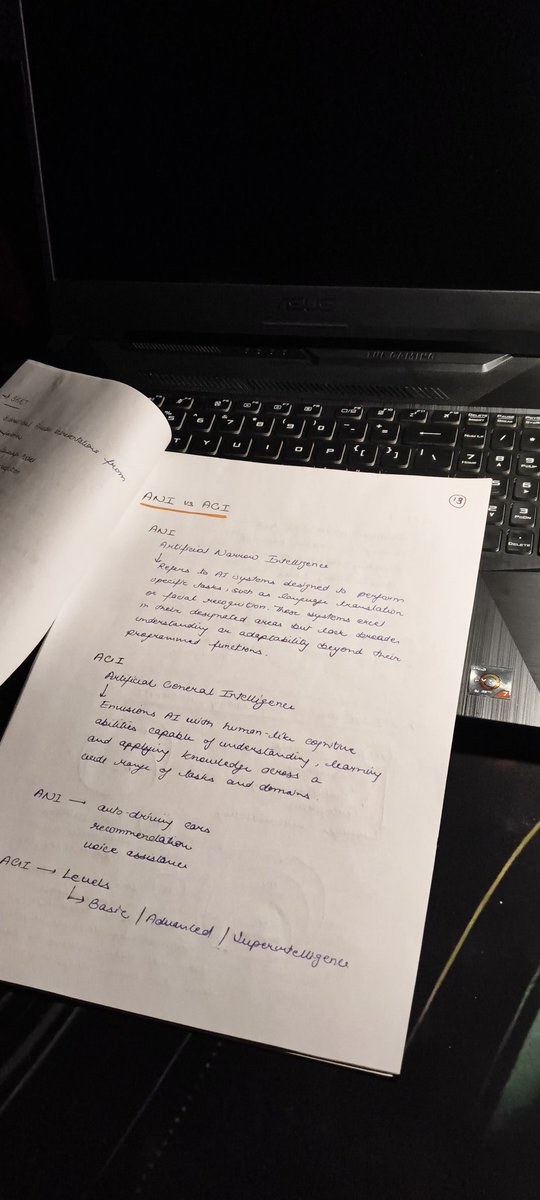 ASUS
THE GAMING
observations from
19
ANI vs AGI
ANI
Artificial Narrow Intelligence
↓
Refers to AI systems designed to perform
specific tasks, such as language translation
or facial recognition. These systems excel
in their designated areas but lack broader
understanding or adaptability beyond their
programmed functions.
AGI
Artificial General Intelligence
↓
Envisions AI with human-like cognitive
abilities capable of understanding, learning
and applying knowledge across a
wide range of tasks and domains.
ANI → auto-driving cars
recommendation
voice assistance
AGI → Levels
↳ Basic / Advanced / Superintelligence